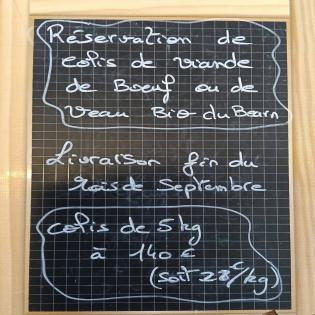 Réservation de
colis de viande
de Boeuf ou de
Veau Bio du Béarn
Livraison fin du
mois de Septembre
colis de 5 kg
à 140 €
(soit 28€/kg)